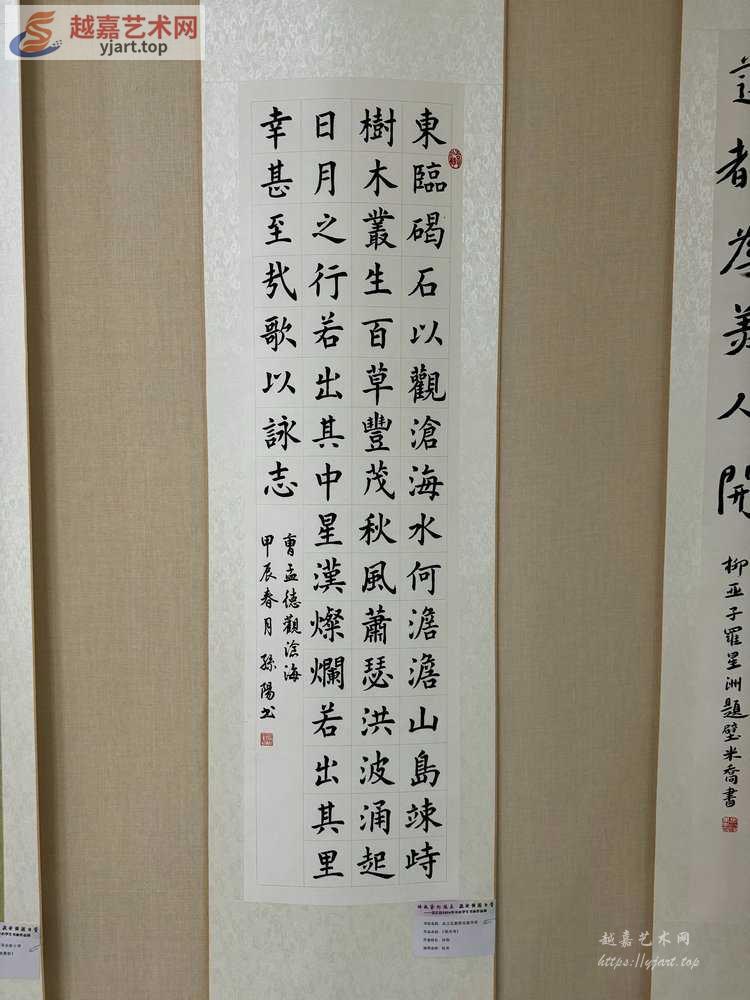 越嘉艺术网
yjart.top
東臨碣石以觀滄海水何澹澹山島竦峙
樹木叢生百草豐茂秋風蕭瑟洪波涌起
日月之行若出其中星漢燦爛若出其里
幸甚至哉歌以詠志
曹孟德觀滄海
甲辰春月孫陽书
者為美人開
柳亚子羅星洲題壁米喬書
越嘉艺术网
https://yjart.top